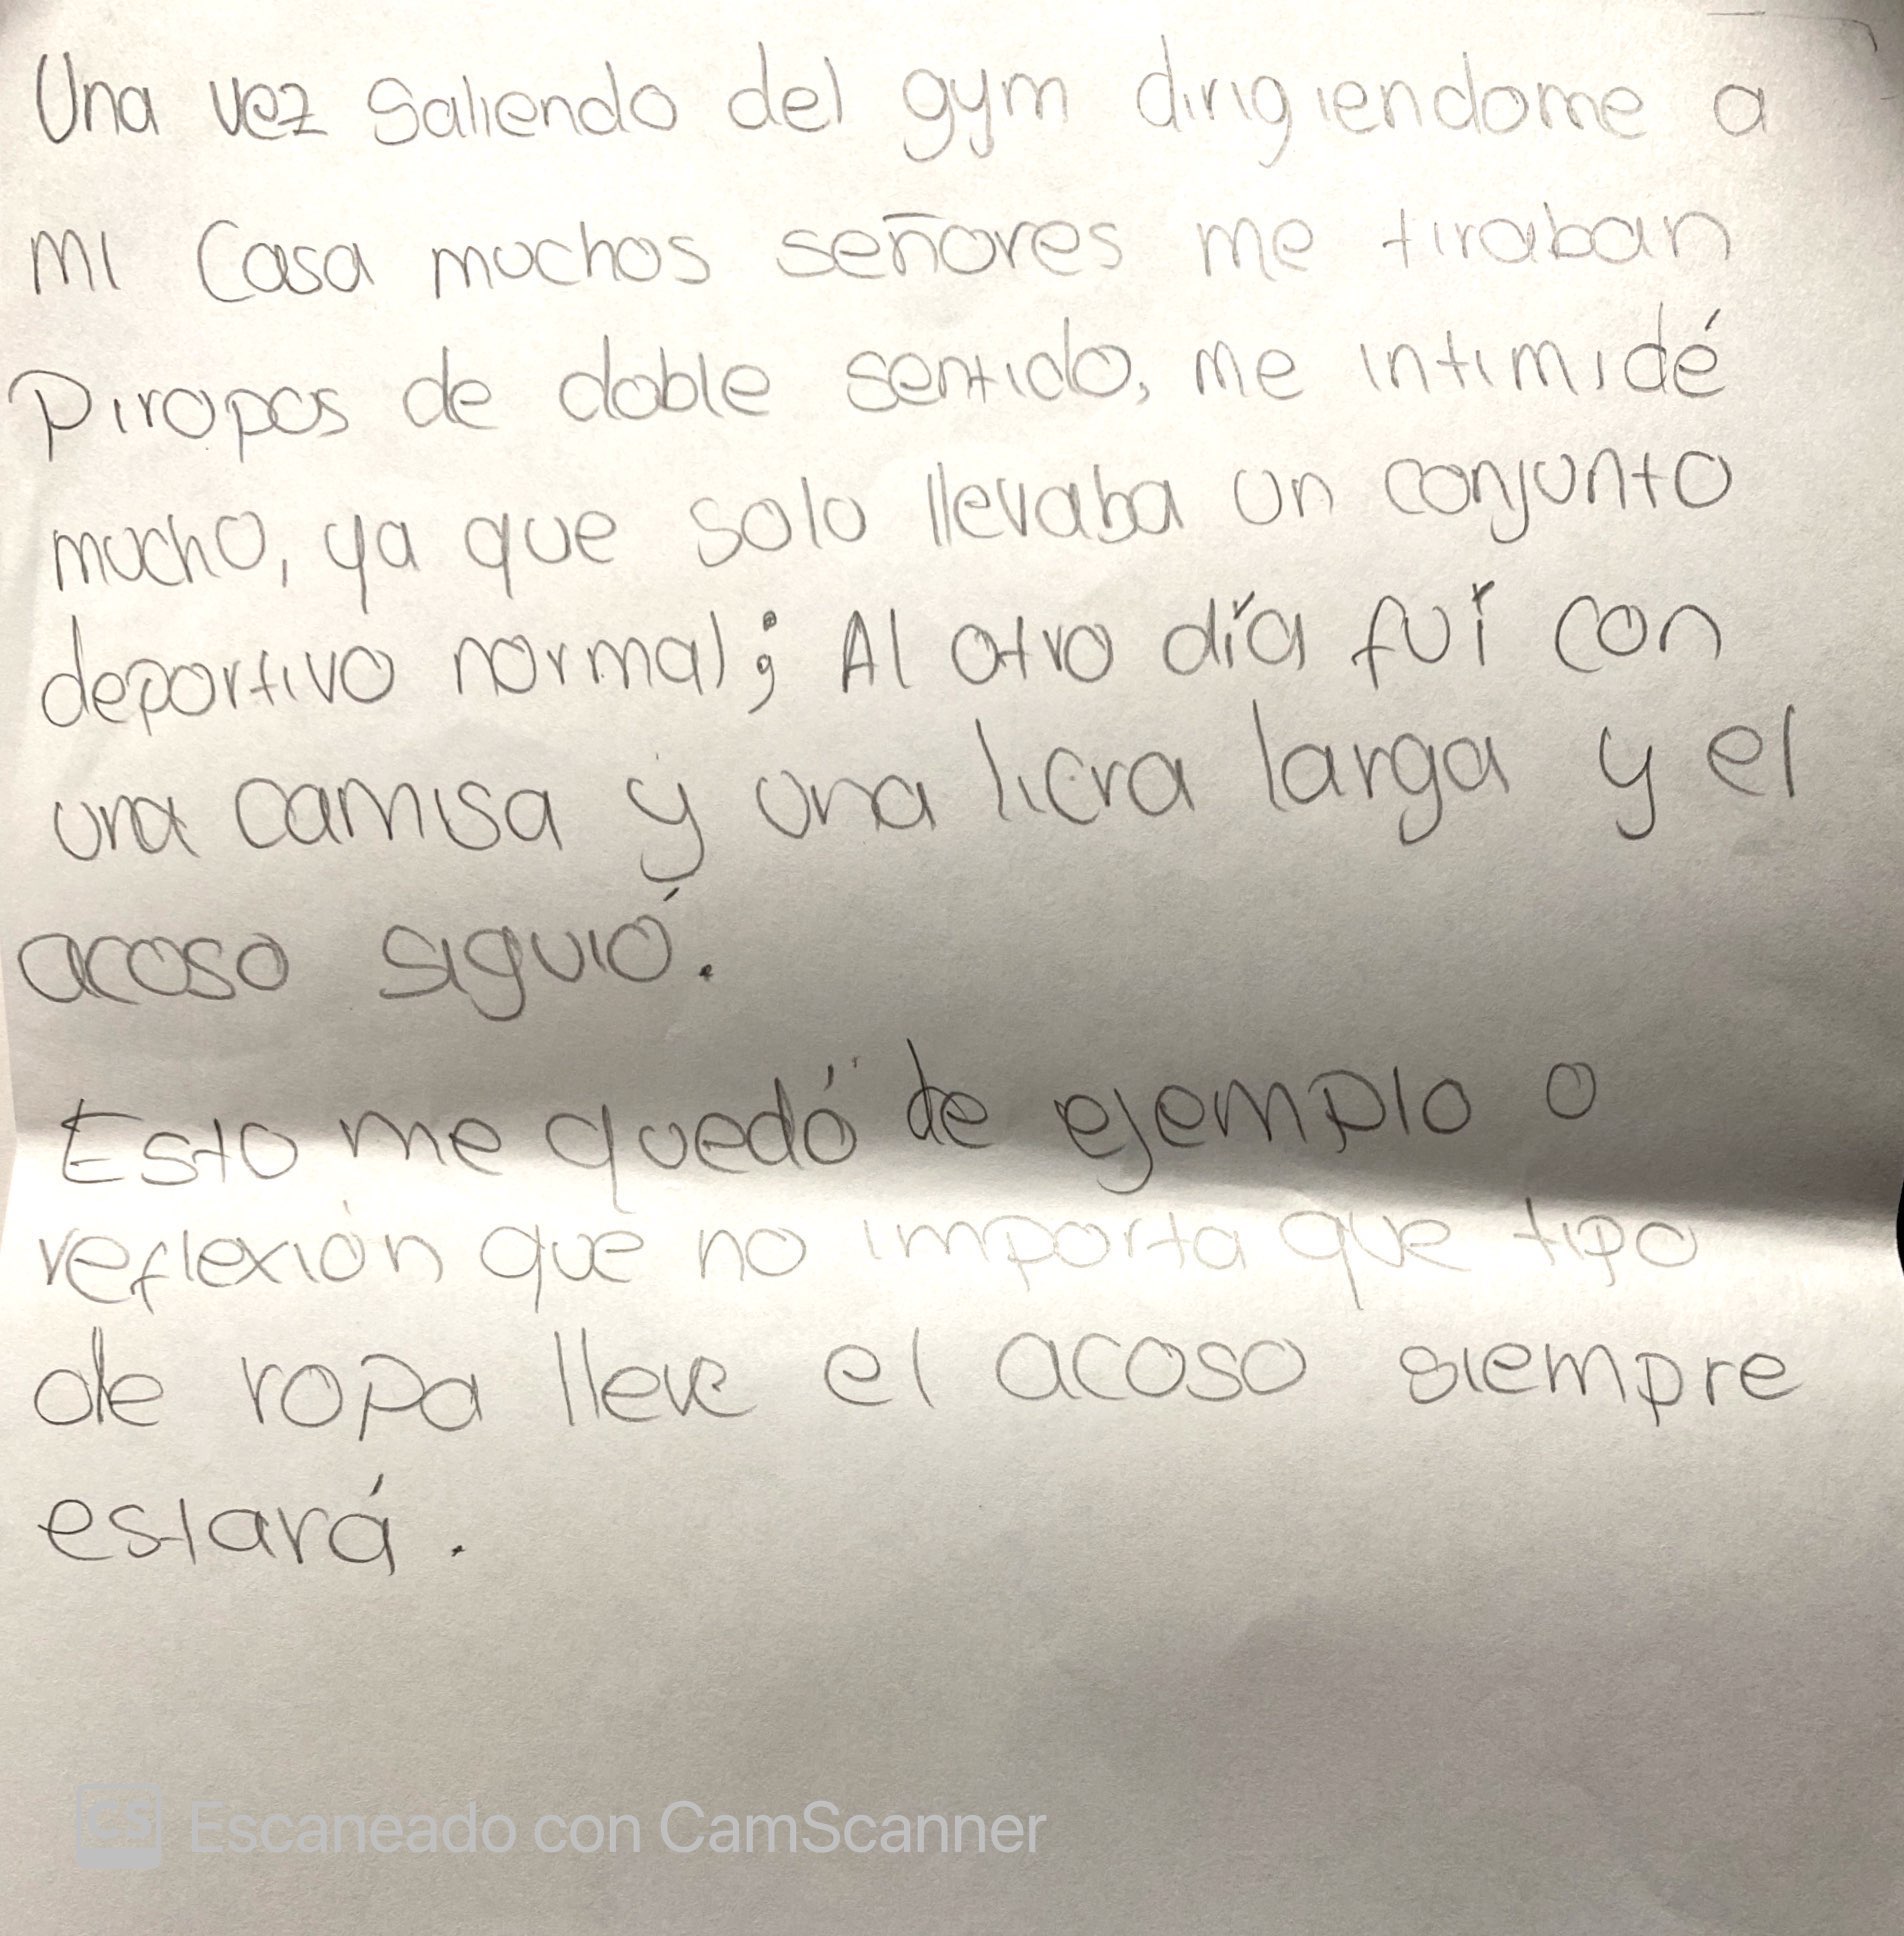 Una vez saliendo del gym dirigiendome a
mi casa muchos señores me tiraban
Piropos de doble sentido, me intimidé
mucho, ya que solo llevaba un conjunto
deportivo normal; Al otro día fuí con
una camisa y una licra larga y el
acoso siguió.
Esto me quedó de ejemplo o
reflexión que no importa que tipo
de ropa lleve el acoso siempre
estará.
CS Escaneado con CamScanner